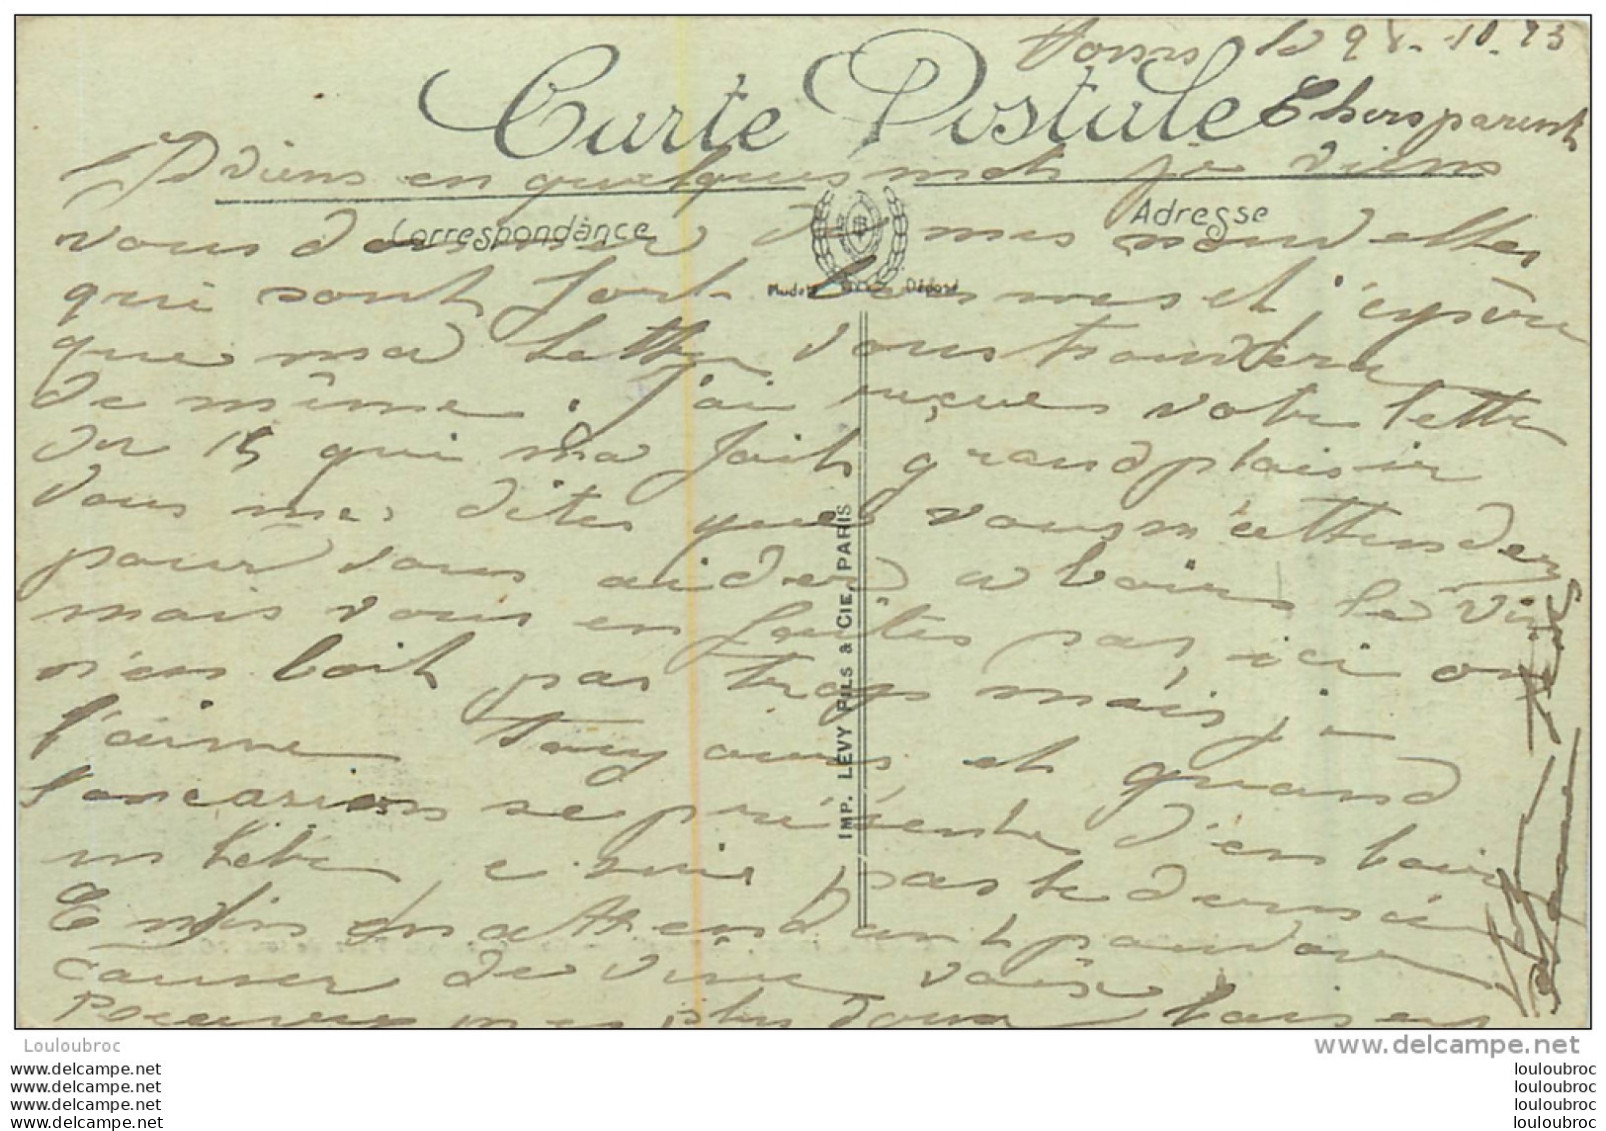 le 10 - 23
Carte Postale
Chers parents
viens en quelques mots je viens
vous donner de mes nouvelles
Correspondance
Adresse
Modèle Déposé
qui sont fort bonnes et j'espère
que ma lettre vous trouvera
de même. J'ai reçues votre lettre
du 15 qui ma fait grand plaisir
vous mes dites que vous m'attender
pour vous aider a boire le vin
mais vous en faites pas ici on
n'en boit pas trop mais je
l'aime toujours et quand
l'oncasion se présente d'en boire
un litre e suis pas le dernié
Enfin en attendant pouvoir
causer de vive voix
recevez mes plus doux baisers
IMP. LEVY FILS & CIE, PARIS
Votre fils
Louloubroc
www.delcampe.net
www.delcampe.net
www.delcampe.net
www.delcampe.net
www.delcampe.net
louloubroc
louloubroc
louloubroc
louloubroc